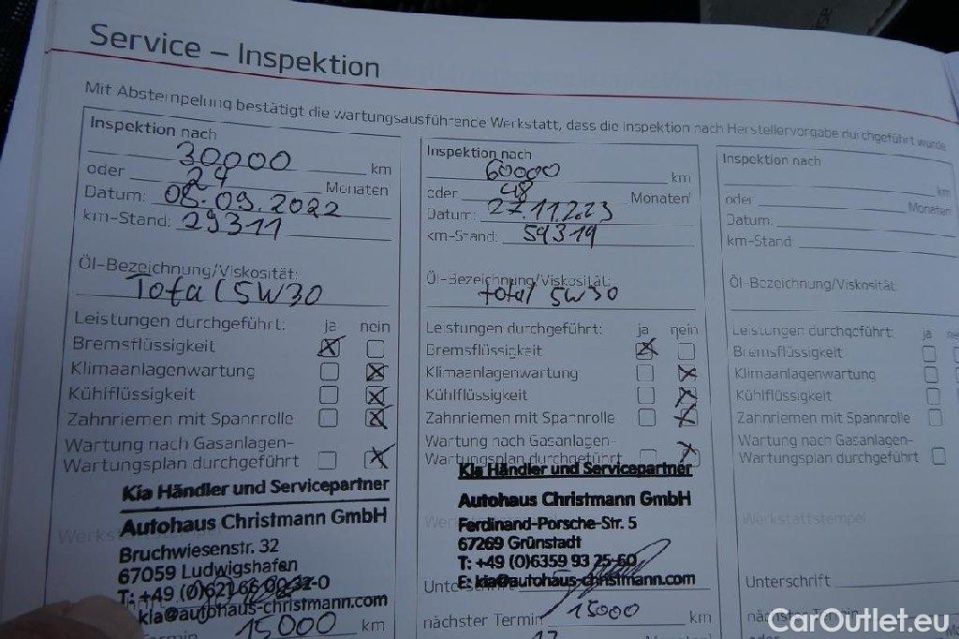 Service – Inspektion
Mit Abstempelung bestätigt die wartungsausführende Werkstatt, dass die Inspektion nach Herstellervorgabe durchgeführt wurde
Inspektion nach
30000 km
oder 24 Monaten
Datum: 08.09.2022
km-Stand: 29311
Öl-Bezeichnung/Viskosität:
Total 5W30
Leistungen durchgeführt: ja nein
Bremsflüssigkeit
Klimaanlagenwartung
Kühlflüssigkeit
Zahnriemen mit Spannrolle
Wartung nach Gasanlagen-
Wartungsplan durchgeführt
Kia Händler und Servicepartner
Autohaus Christmann GmbH
Bruchwiesenstr. 32
67059 Ludwigshafen
kia@autohaus-christmann.com
Termin 15000 km
Inspektion nach
60000 km
oder 48 Monaten
Datum: 27.11.2023
km-Stand: 59319
Öl-Bezeichnung/Viskosität:
total 5W30
Leistungen durchgeführt: ja nein
Bremsflüssigkeit
Klimaanlagenwartung
Kühlflüssigkeit
Zahnriemen mit Spannrolle
Wartung nach Gasanlagen-
Wartungsplan durchgeführt
Kia Händler und Servicepartner
Autohaus Christmann GmbH
Ferdinand-Porsche-Str. 5
67269 Grünstadt
T: +49 (0)6359 93 25-60
E: kia@autohaus-christmann.com
nächster Termin 15000 km
12
Inspektion nach
km
oder Monaten
Datum:
km-Stand:
Öl-Bezeichnung/Viskosität:
Leistungen durchgeführt: ja
Bremsflüssigkeit
Klimaanlagenwartung
Kühlflüssigkeit
Zahnriemen mit Spannrolle
Wartung nach Gasanlagen-
Wartungsplan durchgeführt
Werkstattstempel
Unterschrift
nächster
CarOutlet.eu